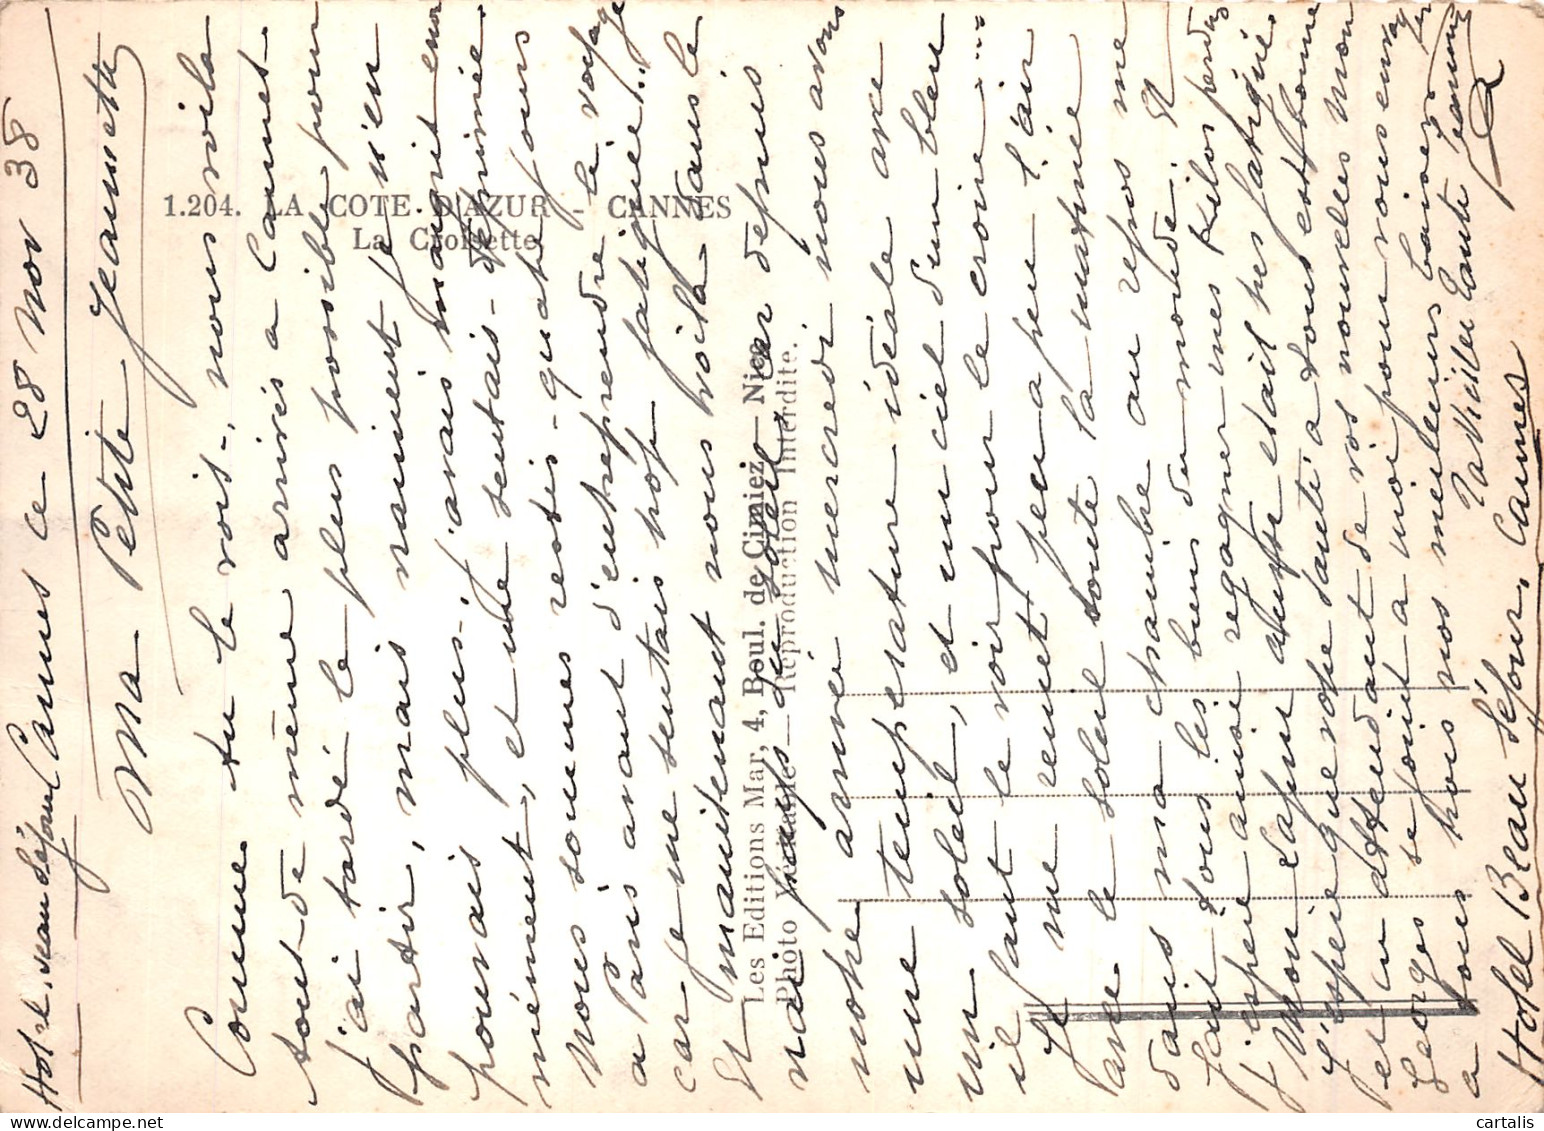 Hotel Beau Séjour Cannes ce 28 Nov 38
Ma Petite Jeannette
Comme tu le vois, nous voila
tout de même arrivés a Cannes.
J'ai tardé le plus possible pour
partir, mais vraiment je n'en
pouvais plus, j'avais maigri enor
mément, et me sentais déprimée
Nous sommes restés quatre jours
a Paris avant d'entreprendre le voyage
car je me sentais trop fatiguée!..
Et maintenant nous voila dans le
vrai pays du soleil car depuis
notre arrivée mercredi nous avons
une température idéale avec
un soleil, et un ciel d'un bleu
il faut le voir pour le croire....
Je me remet peu a peu l'air
avec le soleil toute la matinée
dans ma chambre au repos me
fait tous les biens du monde. Et
j'espère ainsi regagner mes kilos perdus
Mon Lapin était très fatigué
J'espère que votre santé a tous est bonne
et en attendant de vos nouvelles Mon
Georges se joint a moi pour vous envoyer
a tous trois nos meilleurs baisers
Ta vieille Tante Jeanne
Hotel Beau Séjour, Cannes
1.204. LA COTE D'AZUR - CANNES
La Croisette
Les Editions Mar, 4, Boul. de Cimiez - Nice
Photo Véritable - Reproduction Interdite.
cartalis